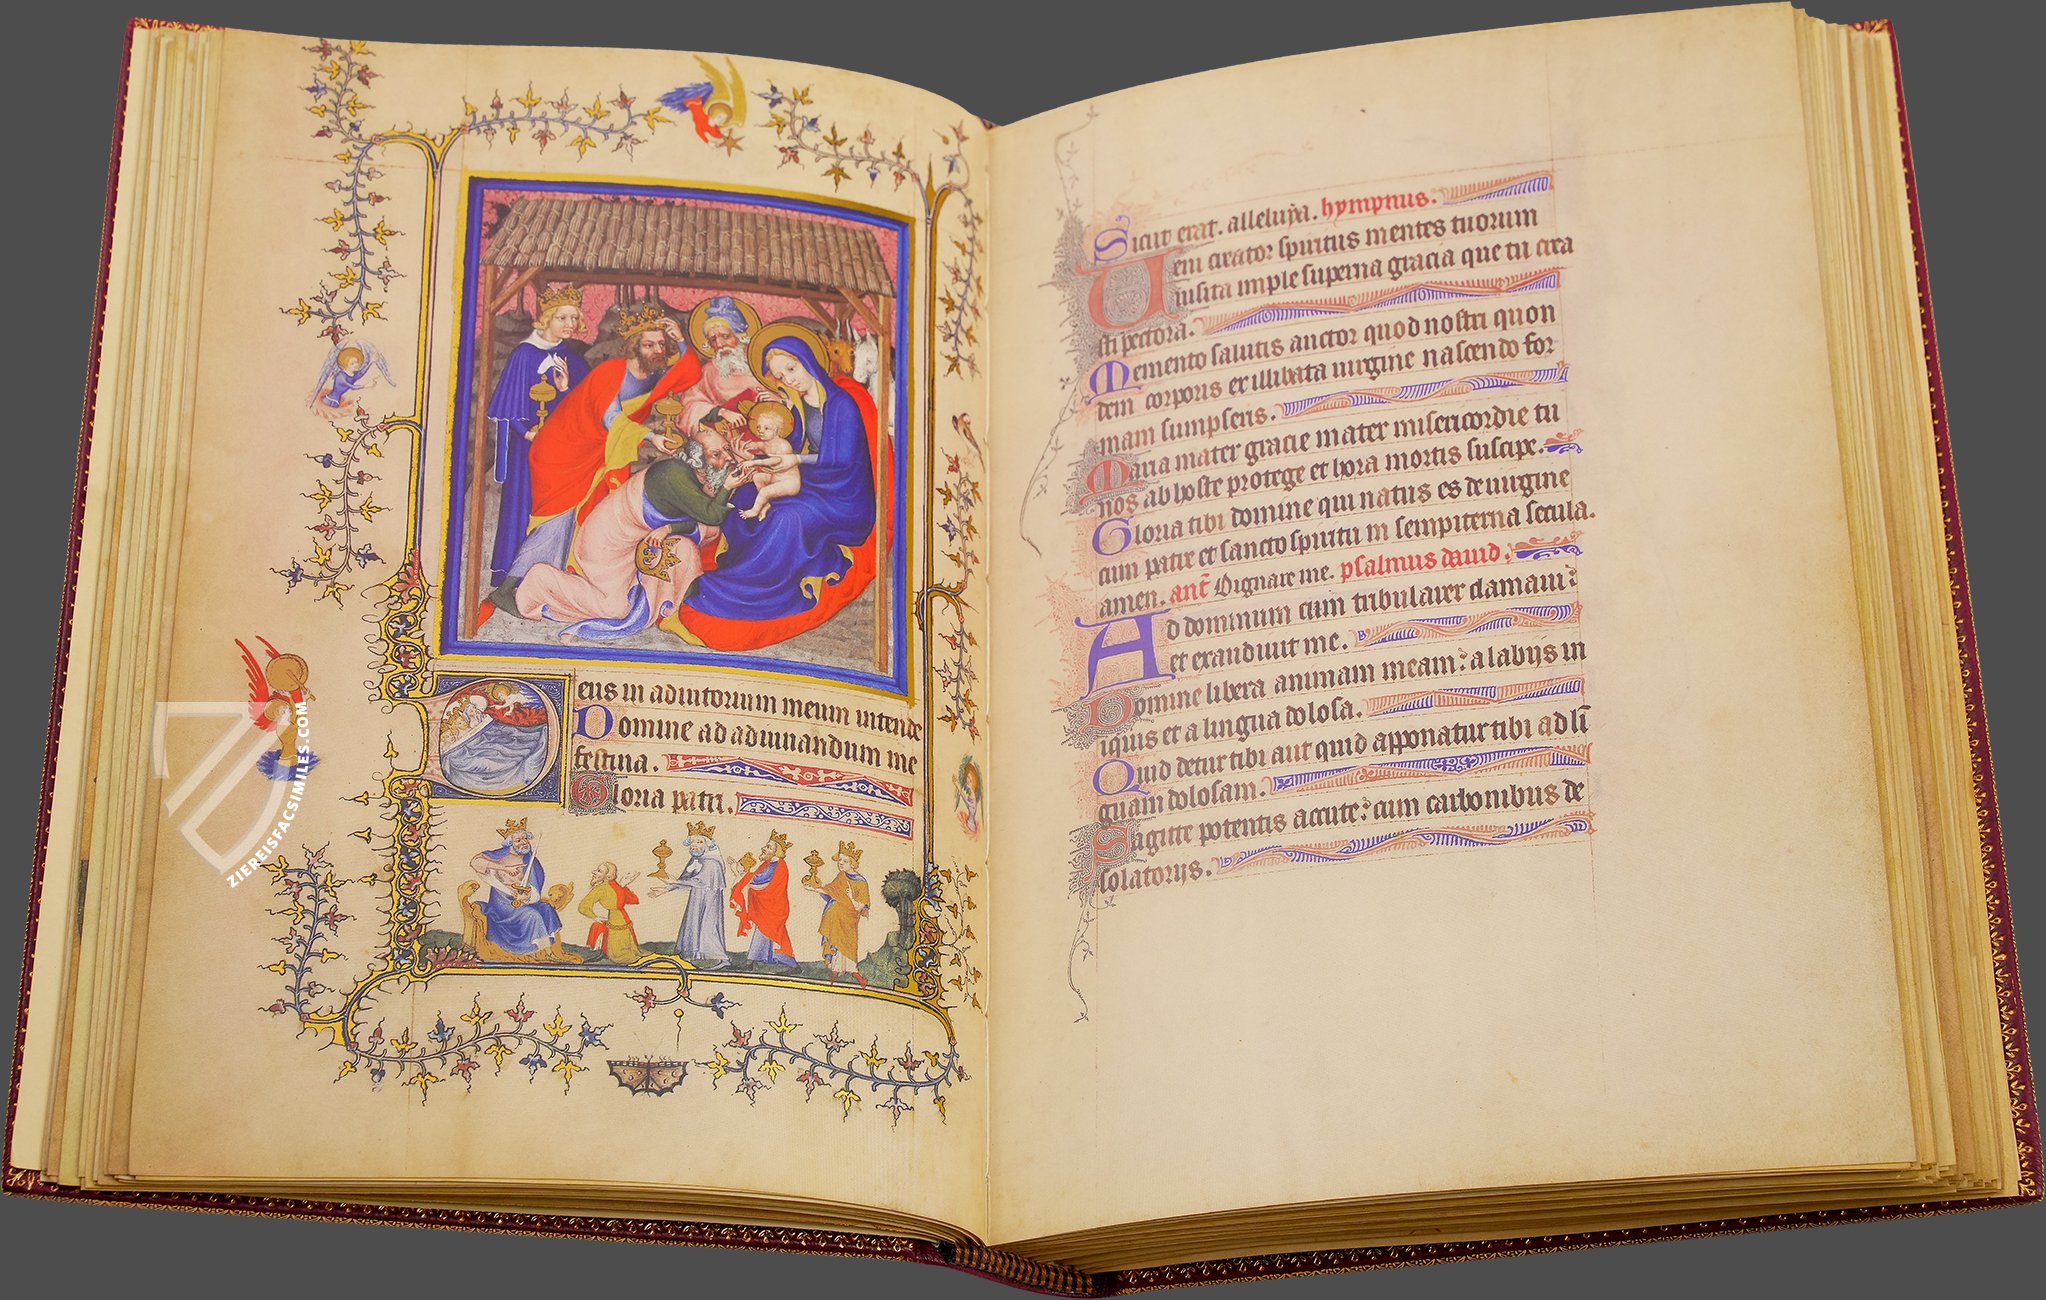 eus in adiutorium meum intende
Domine ad adiuuandum me
festina.
Gloria patri.
ZIEREISFACSIMILES.COM
Sicut erat. alleluya. hympnus.
Ueni creator spiritus mentes tuorum
uisita imple superna gracia que tu crea
sti pectora.
Memento salutis auctor quod nostri quon
dem corporis ex illibata uirgine nascendo for
mam sumpseris.
Maria mater gracie mater misericordie tu
nos ab hoste protege et hora mortis suscipe.
Gloria tibi domine qui natus es de uirgine
cum patre et sancto spiritu in sempiterna secula.
amen. ant Dignare me. psalmus dauid.
Ad dominum cum tribularer clamaui:
et exaudiuit me.
Domine libera animam meam: a labijs in
iquis et a lingua dolosa.
Quid detur tibi aut quid apponatur tibi ad li
guam dolosam.
Sagitte potentis accute: cum carbonibus de
solatorijs.